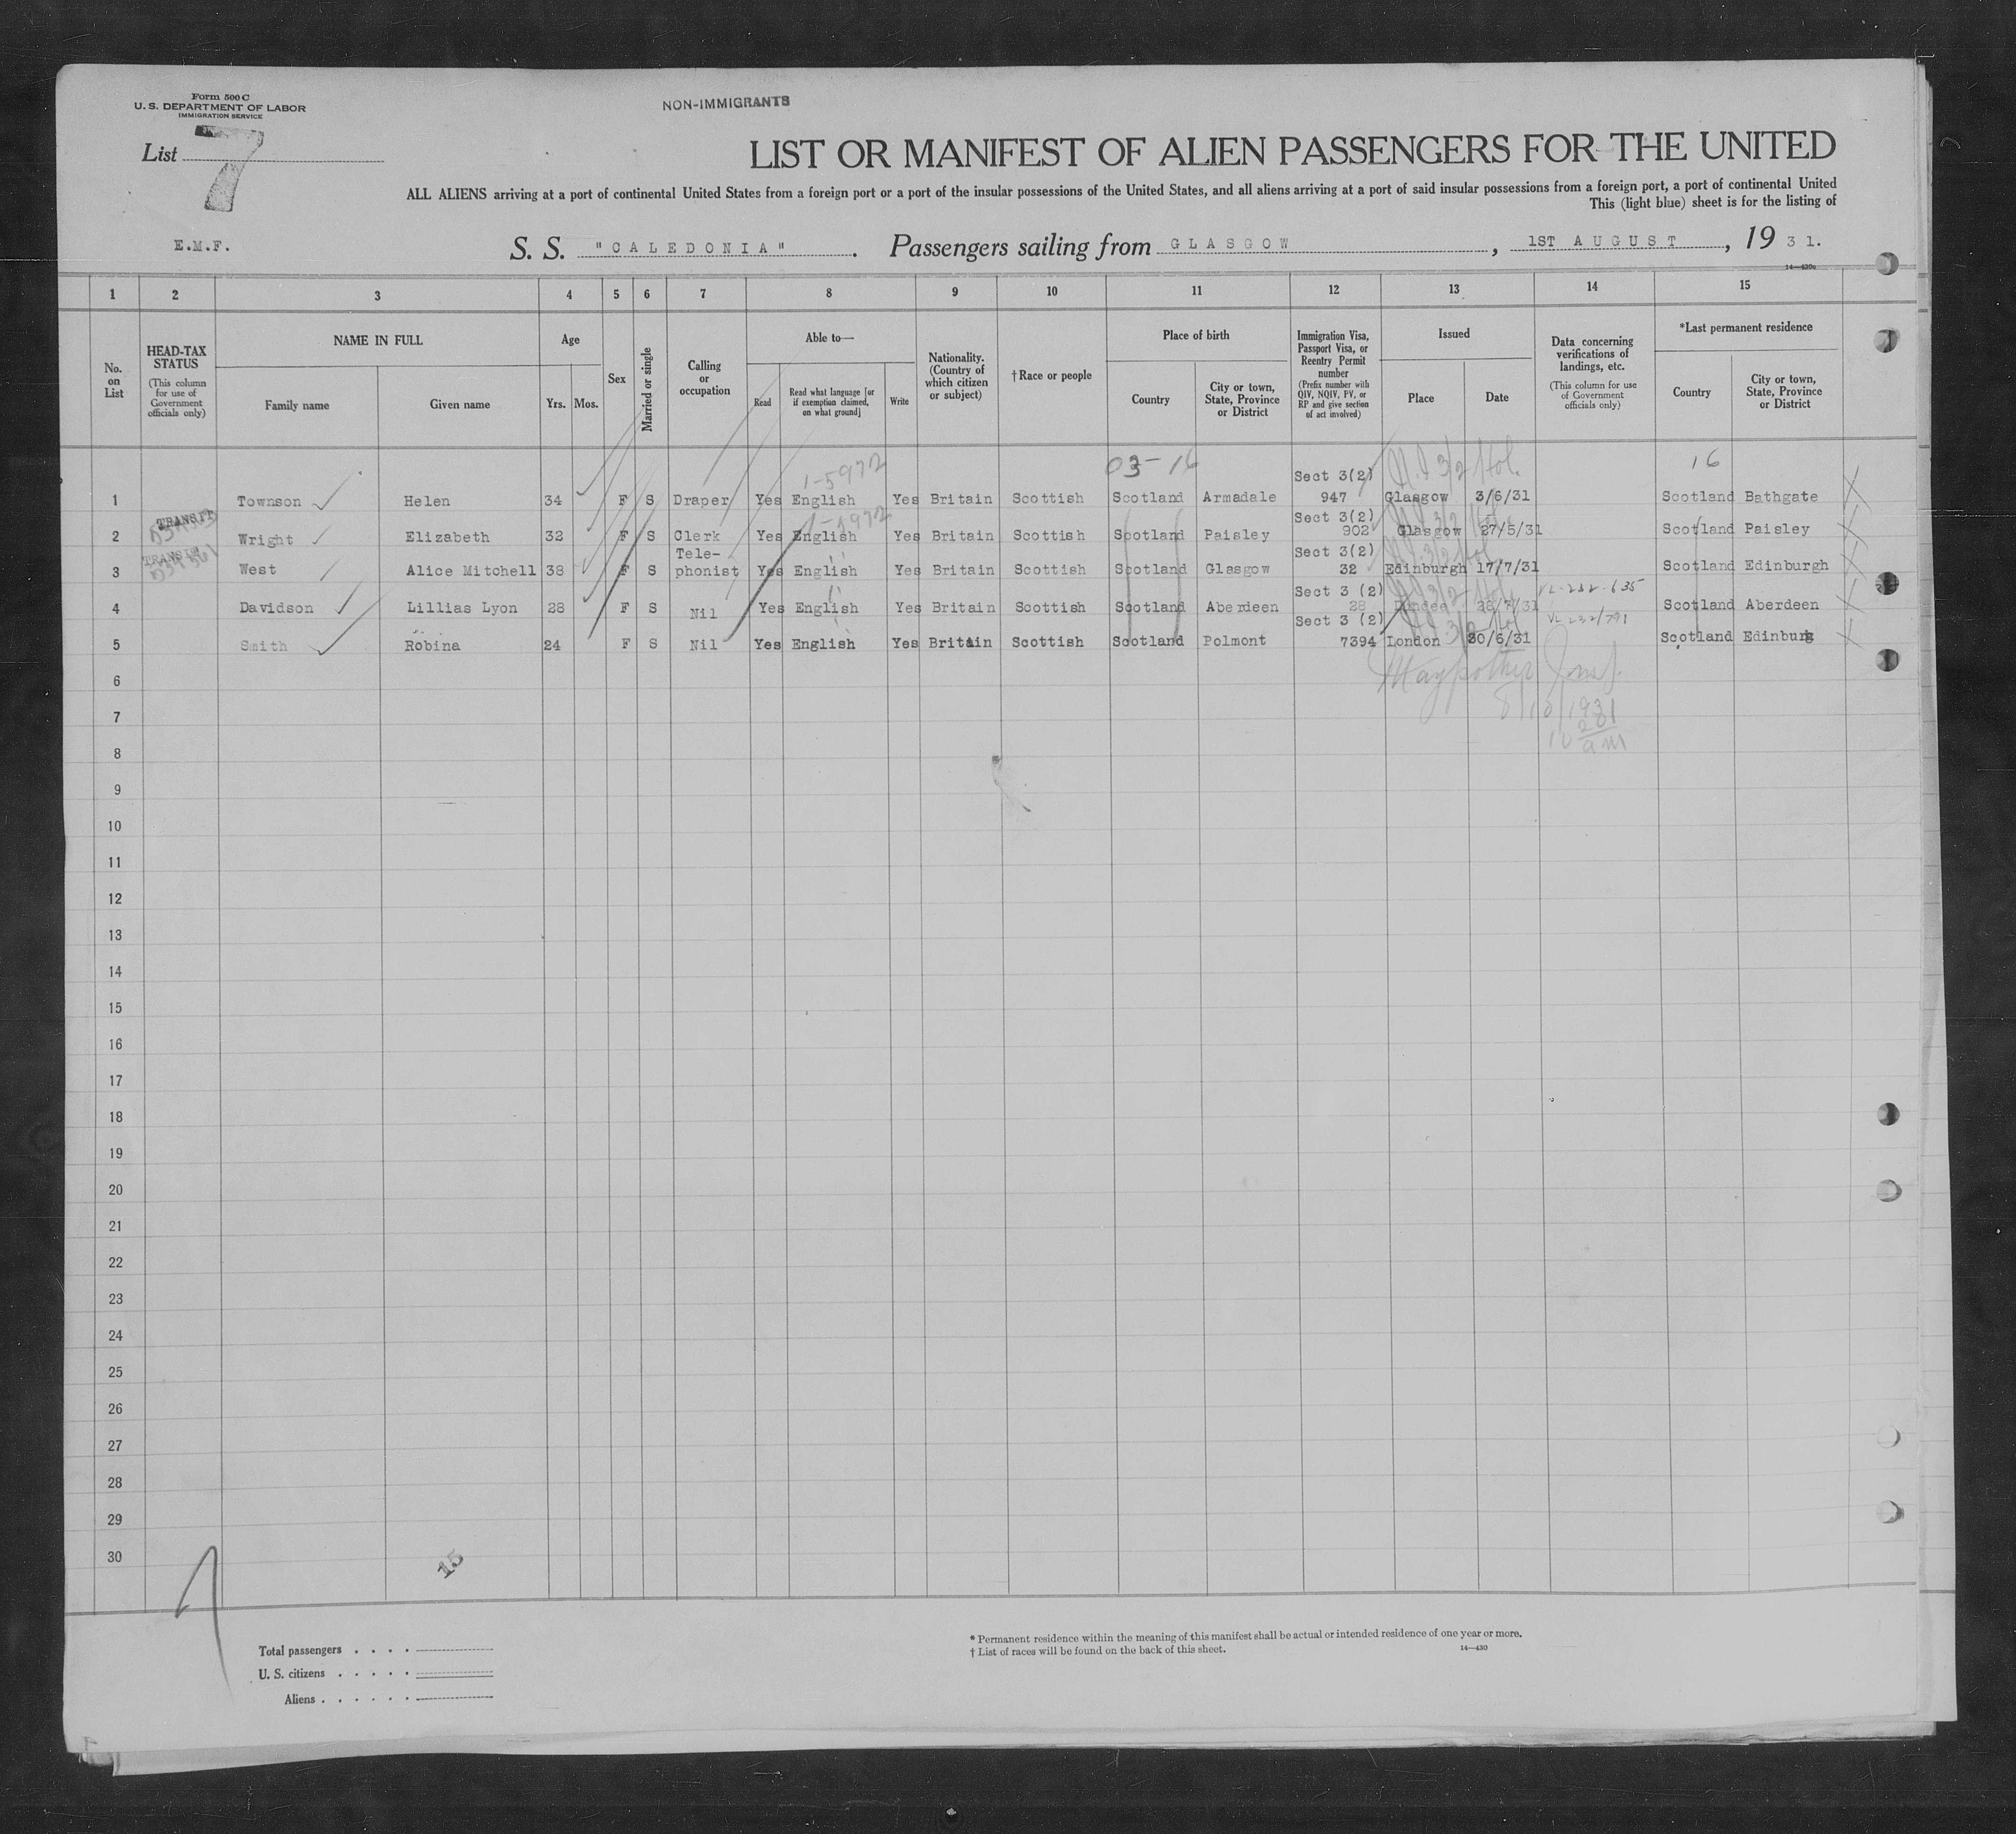 Form 500 C
U. S. DEPARTMENT OF LABOR
IMMIGRATION SERVICE
NON-IMMIGRANTS
List 7
LIST OR MANIFEST OF ALIEN PASSENGERS FOR THE UNITED
ALL ALIENS arriving at a port of continental United States from a foreign port or a port of the insular possessions of the United States, and all aliens arriving at a port of said insular possessions from a foreign port, a port of continental United
This (light blue) sheet is for the listing of
E.M.F.
S. S. "CALEDONIA". Passengers sailing from GLASGOW, 1ST AUGUST, 1931.
14—430a
1 2 3 4 5 6 7 8 9 10 11 12 13 14 15
No. on List
HEAD-TAX STATUS (This column for use of Government officials only)
NAME IN FULL
Family name
Given name
Age
Yrs.
Mos.
Sex
Married or single
Calling or occupation
Able to—
Read
Read what language [or if exemption claimed, on what ground]
Write
Nationality. (Country of which citizen or subject)
†Race or people
Place of birth
Country
City or town, State, Province or District
Immigration Visa, Passport Visa, or Reentry Permit number (Prefix number with QIV, NQIV, PV, or RP and give section of act involved)
Issued
Place
Date
Data concerning verifications of landings, etc. (This column for use of Government officials only)
*Last permanent residence
Country
City or town, State, Province or District
1-5972 03-16 16
Sect 3(2)
1 Townson Helen 34 F S Draper Yes English Yes Britain Scottish Scotland Armadale 947 Glasgow 3/6/31 Scotland Bathgate
TRANSIT Sect 3(2)
2 Wright Elizabeth 32 F S Clerk Yes English Yes Britain Scottish Scotland Paisley 902 Glasgow 27/5/31 Scotland Paisley
TRANSIT Tele- Sect 3(2)
3 West Alice Mitchell 38 F S phonist Yes English Yes Britain Scottish Scotland Glasgow 32 Edinburgh 17/7/31 Scotland Edinburgh
Sect 3 (2) VL-232-635
4 Davidson Lillias Lyon 28 F S Nil Yes English Yes Britain Scottish Scotland Aberdeen 28 Dundee 28/7/31 Scotland Aberdeen
Sect 3 (2) VL 232/791
5 Smith Robina 24 F S Nil Yes English Yes Britain Scottish Scotland Polmont 7394 London 30/6/31 Scotland Edinburg
6
7
8
10 am
9
10
11
12
13
14
15
16
17
18
19
20
21
22
23
24
25
26
27
28
29
30
15
Total passengers
U. S. citizens
Aliens
* Permanent residence within the meaning of this manifest shall be actual or intended residence of one year or more.
† List of races will be found on the back of this sheet.
14—430